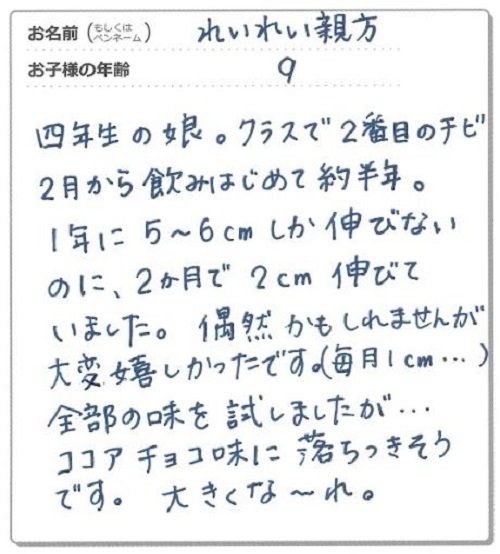 お名前（もしくはペンネーム） れいれい親方
お子様の年齢 9
四年生の娘。クラスで2番目のチビ
2月から飲みはじめて約半年。
1年に5～6cmしか伸びない
のに、2か月で2cm伸びて
いました。偶然かもしれませんが
大変嬉しかったです。(毎月1cm…)
全部の味を試しましたが…
ココアチョコ味に落ちつきそう
です。大きくな～れ。